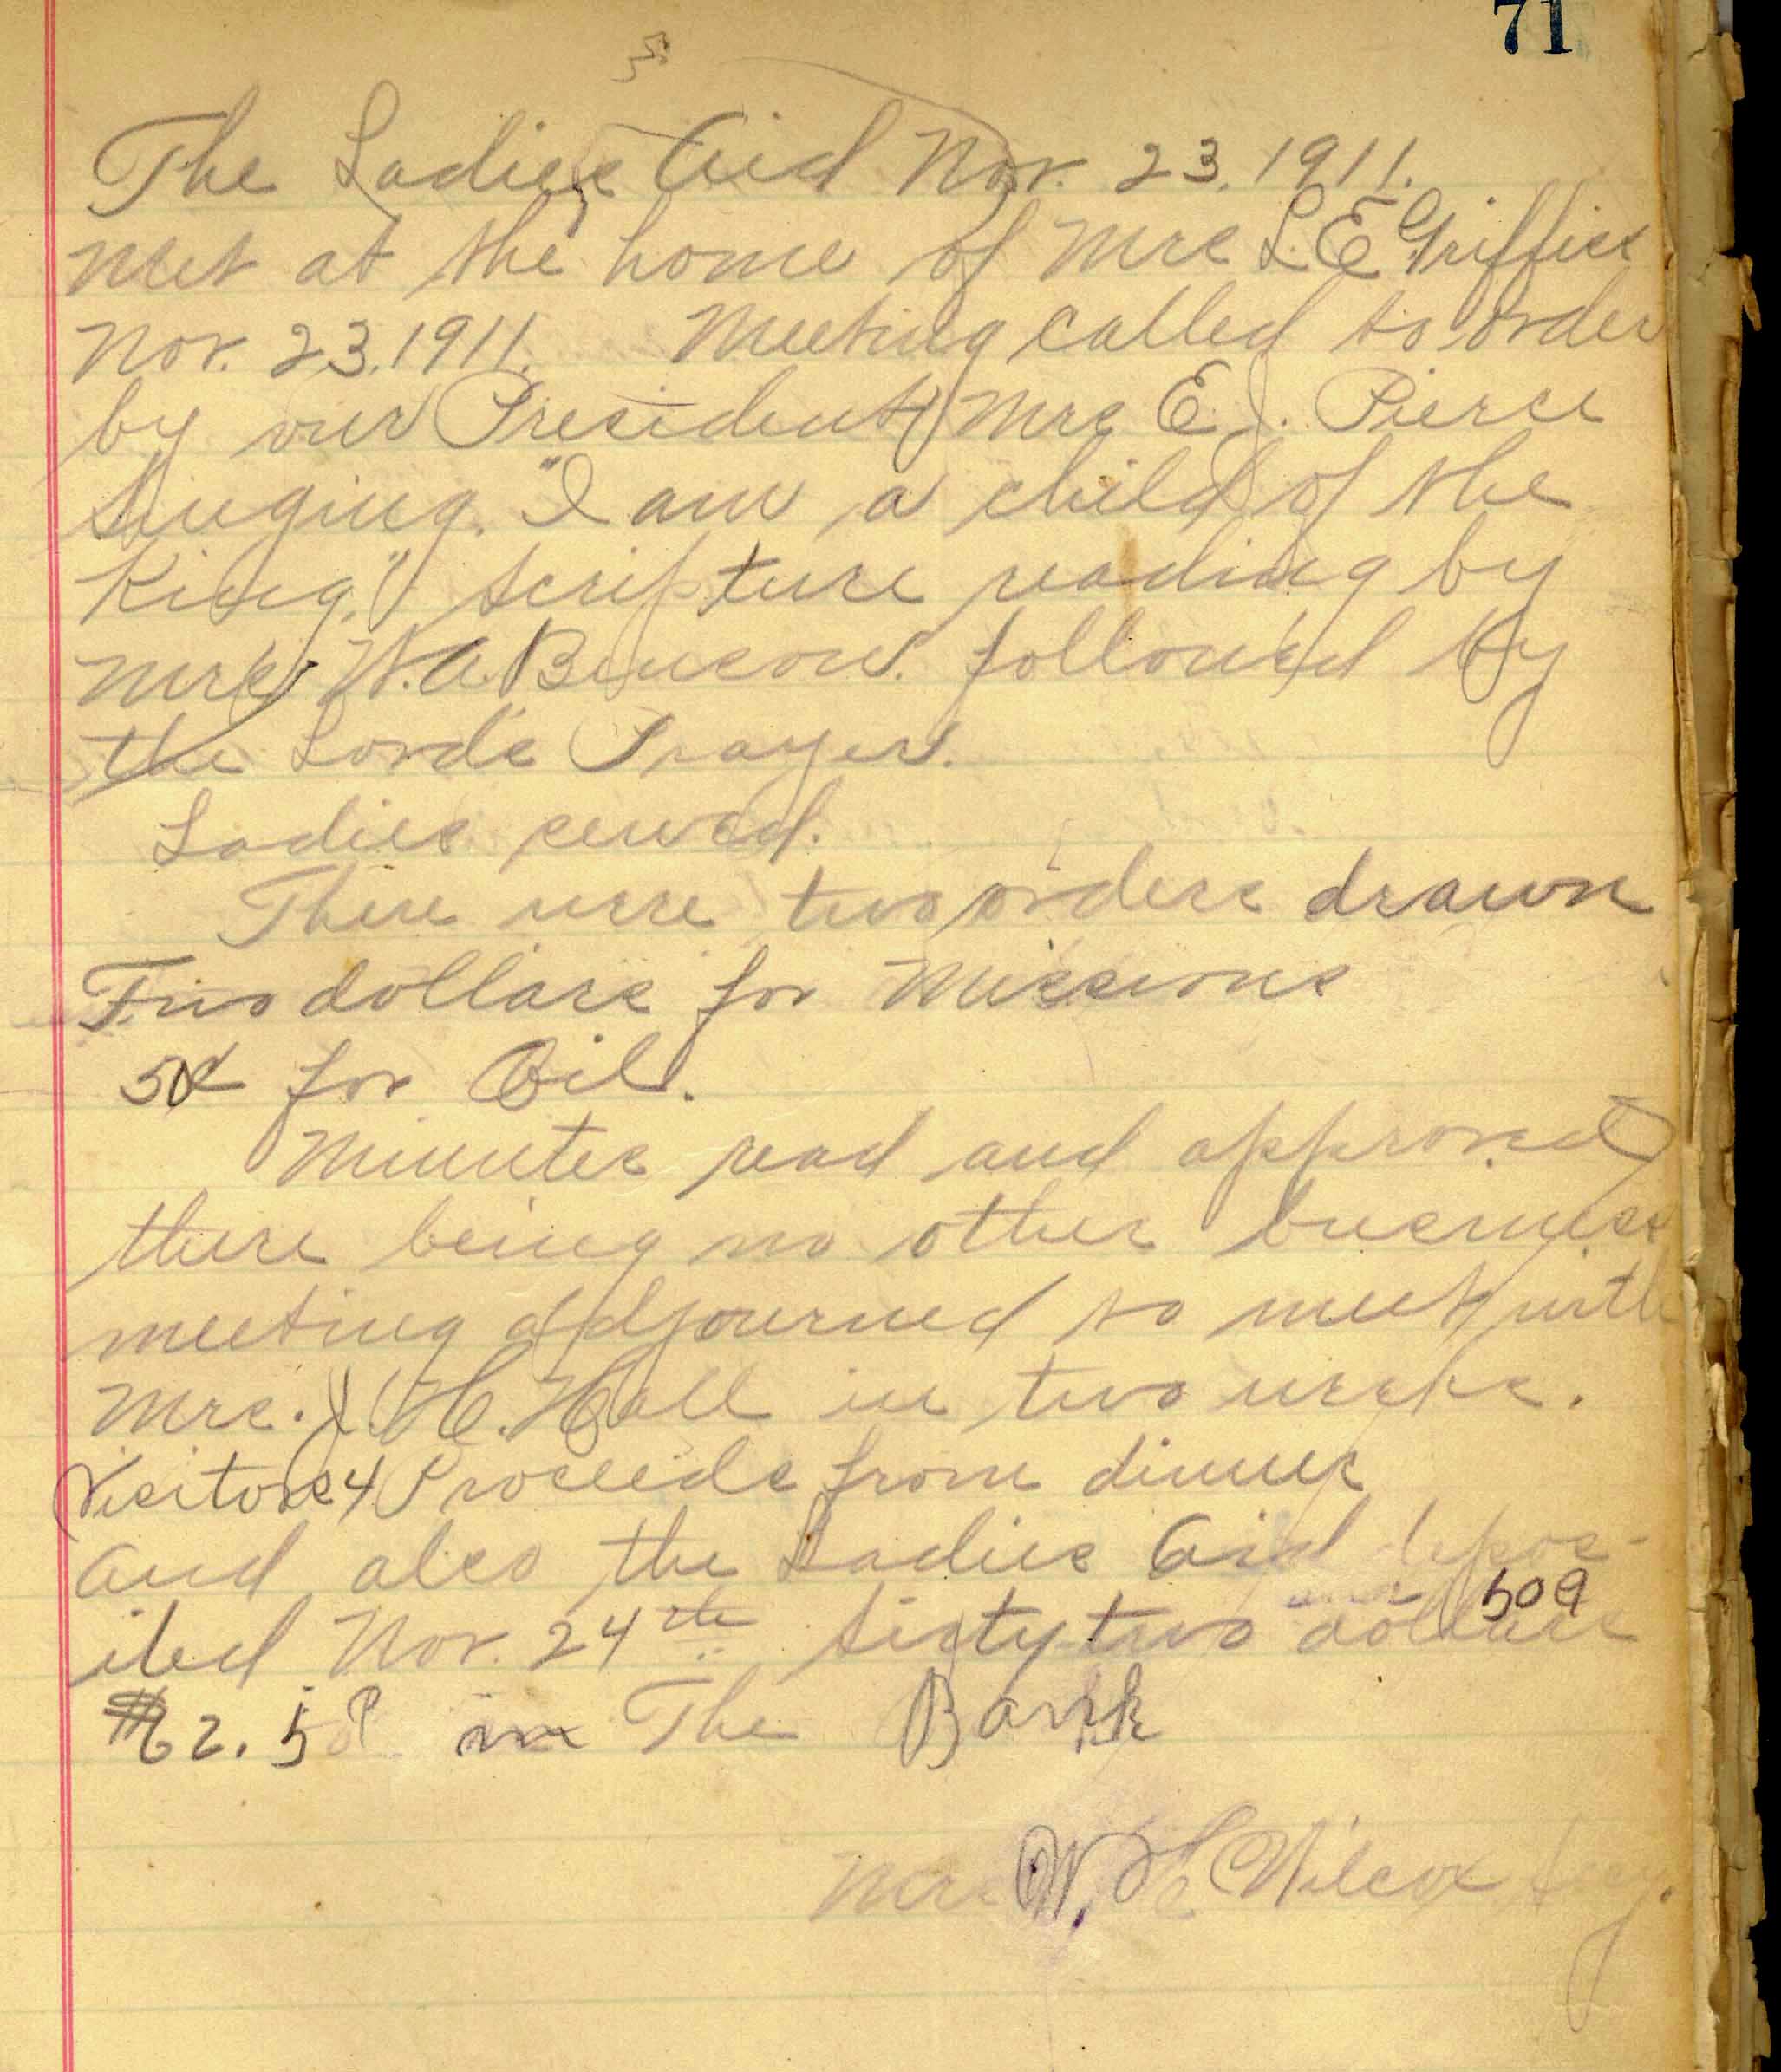 71
The Ladies Aid Nov. 23. 1911.
met at the home of Mrs L. E Griffies
Nov. 23. 1911. Meeting called to order
by our President Mrs E. J. Pierce
Singing. "I am a child of the
King," Scripture reading by
Mrs W. A. Benson. followed by
the Lords Prayer.
Ladies sewed.
There were two orders drawn
Two dollars for Missions
50¢ for Oil.
Minutes read and approved
there being no other business
meeting adjourned to meet with
Mrs. J. H. Hall in two weeks.
Visitors 4 Proceeds from dinner
and also the Ladies Aid depos-
ited Nov. 24th Sixty-two dollars 50
$62.50 in The Bank
Mrs W. H. Wilcox Secy.